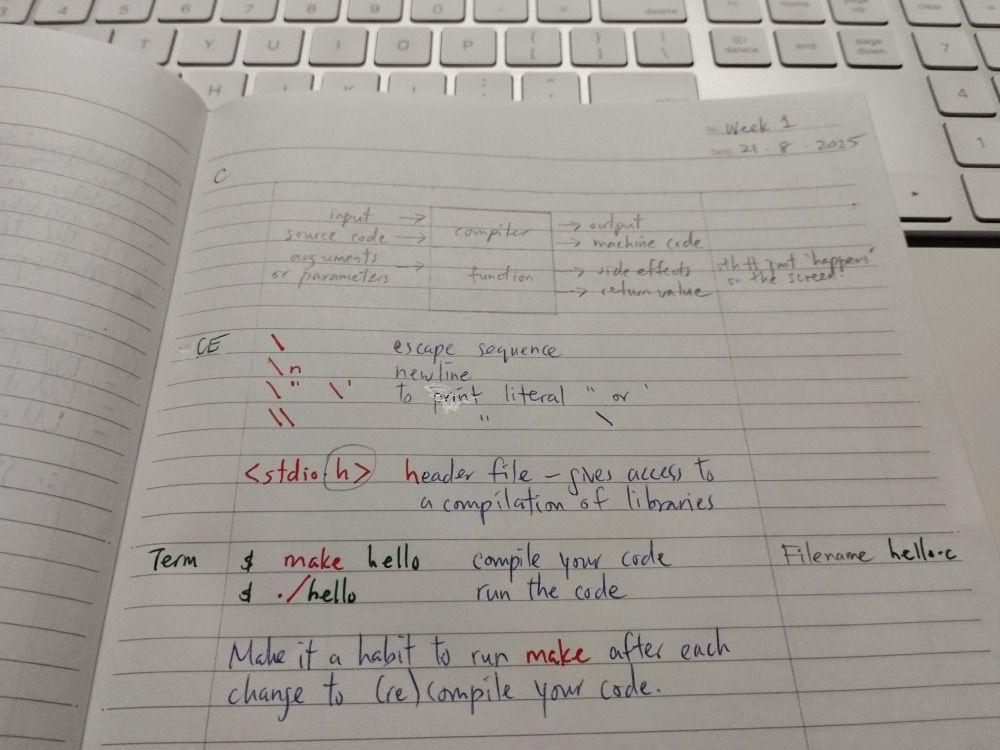 3 4 5 6 7 8 9 0 - = delete fn home page up clear
T Y U I O P { [ } ] | \ delete end page down 7
H
4
1
Week 1
DATE 21 · 8 · 2025
C
input →
source code →
arguments
or parameters →
compiler
function
→ output
→ machine code
→ side effects
→ return value
"happens"
on the screen.
CE \ escape sequence
\n newline
\" \' to print literal " or '
\\ " \
<stdio.h> header file – gives access to
a compilation of libraries
Term $ make hello compile your code Filename hello.c
$ ./hello run the code
Make it a habit to run make after each
change to (re)compile your code.